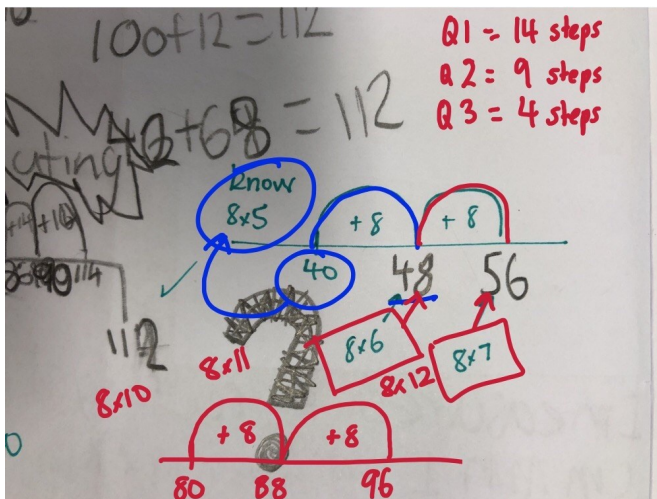 100+12=112
Q1 - 14 steps
Q2 = 9 steps
Q3 = 4 steps
+68 = 112
know
8×5
+8
+8
40
48
56
+14
114
112
8×6
8×7
8×10
8×11
8×12
+8
+8
80
88
96